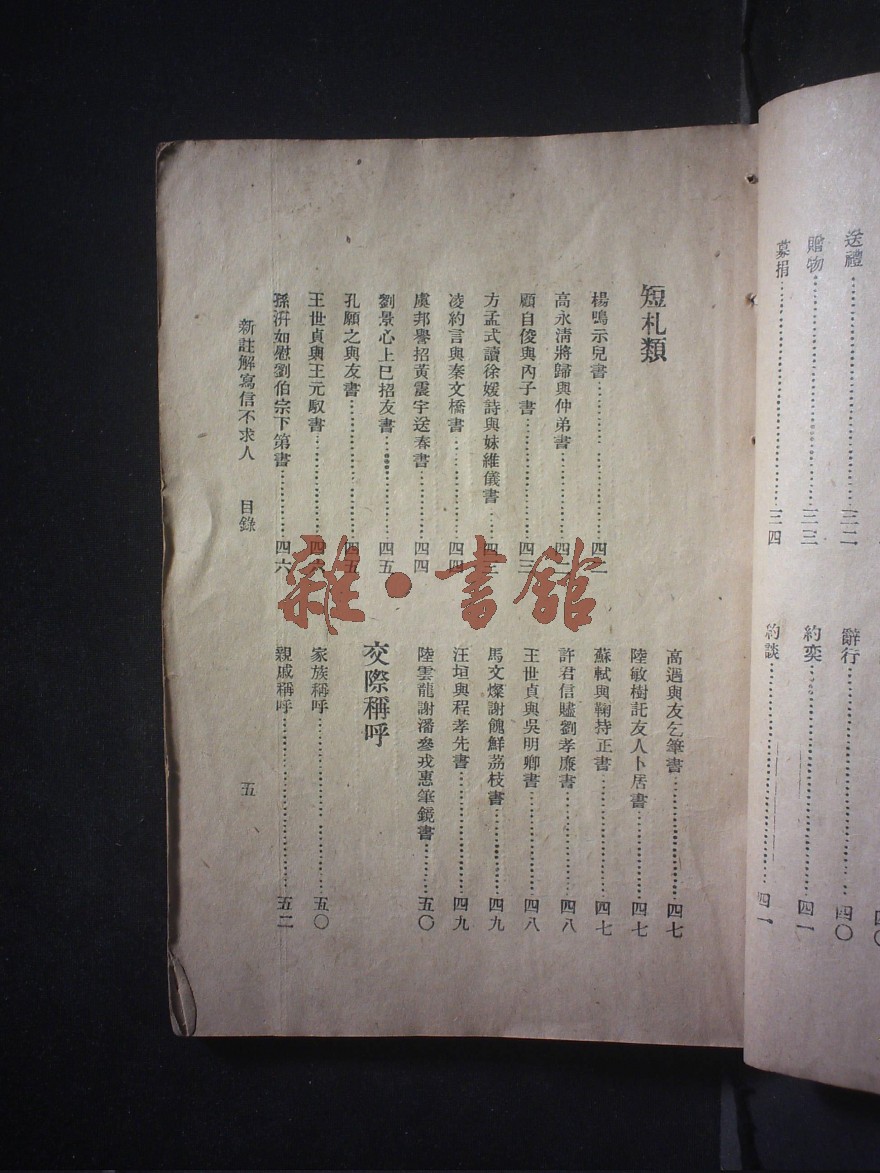 送禮……三二
贈物……三三
募捐……三四
四〇
辭行……四〇
約奕……四一
約談……四一
短札類
楊鳴示兒書……四二
高永清將歸與仲弟書……四二
顧自俊與內子書……四三
方孟式讀徐媛詩與妹維儀書……四三
凌約言與秦文橋書……四四
虞邦譽招黃震宇送春書……四四
劉景心上巳招友書……四五
孔願之與友書……四五
王世貞與王元馭書……四六
孫汧如慰劉伯宗下第書……四六
高遇與友乞筆書……四七
陸敏樹託友人卜居書……四七
蘇軾與鞠持正書……四七
許君信壚劉孝廉書……四八
王世貞與吳明卿書……四八
馬文燦謝餽鮮荔枝書……四九
汪垣與程孝先書……四九
陸雲龍謝潘參戎惠筆鏡書……五〇
交際稱呼
家族稱呼……五〇
親戚稱呼……五二
新註解寫信不求人 目錄 五
雜·書館